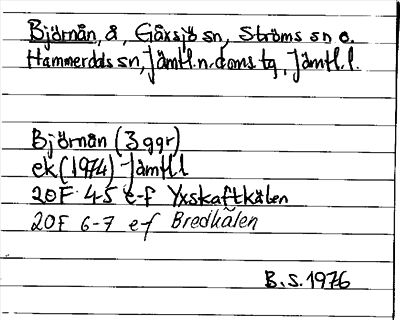 Björnån, å, Gåxsjö sn, Ströms sn o.
Hammerdals sn, Jämtl. n. doms.tg, Jämtl. l.
Björnån (3 ggr)
ek (1974) Jämtl. l
20F 4-5 e-f Yxskaftkälen
20F 6-7 e-f Bredkälen
B.S. 1976